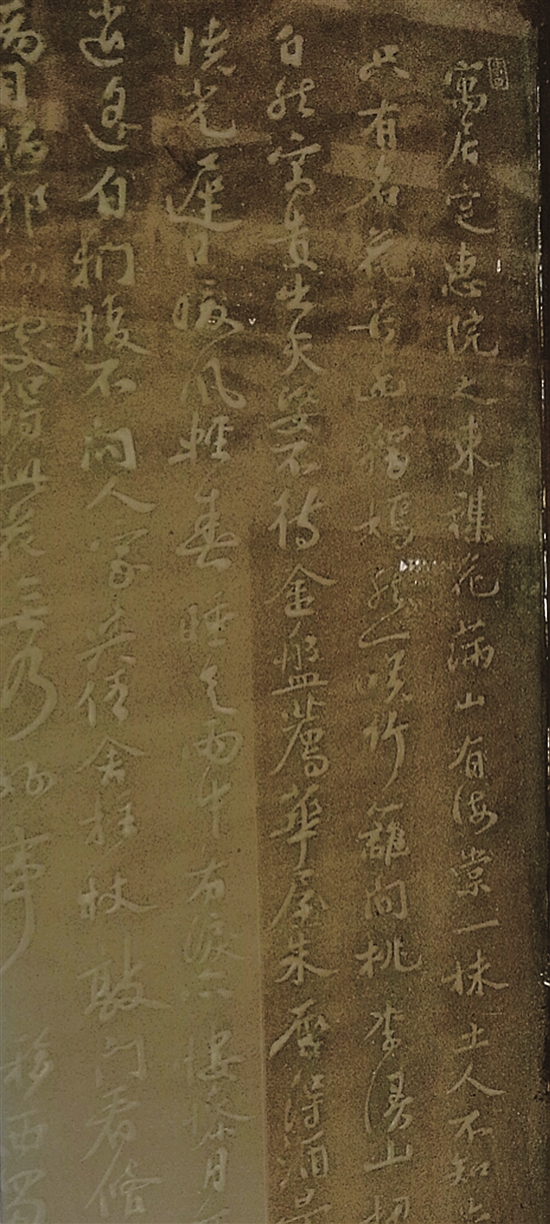 寓居定惠院之東雜花滿山有海棠一株土人不知
只有名花苦幽獨嫣然一笑竹籬間桃李漫山
自然富貴出天姿不待金盤薦華屋朱脣得酒
曉光遲日暖風輕春睡足雨中有淚亦悽愴月
逍遙自捫腹不問人家與僧舍拄杖敲門看修
目 何處得此 無乃好事 移西蜀